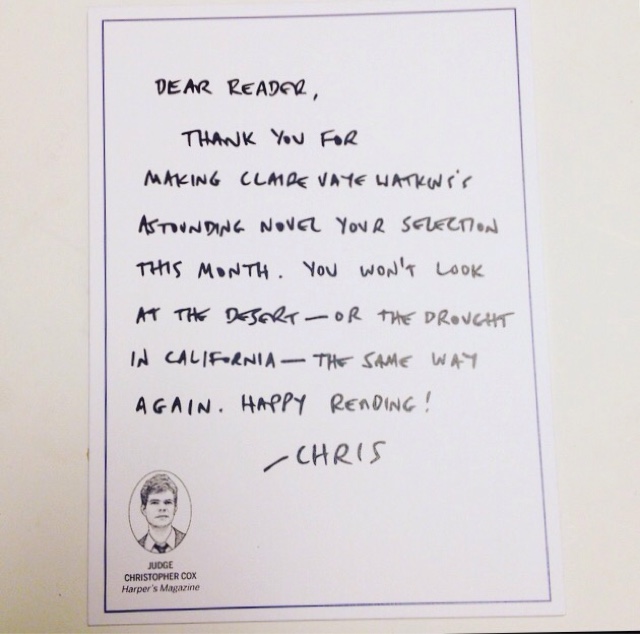 DEAR READER,
THANK YOU FOR
MAKING CLAIRE VAYE WATKINS'S
ASTOUNDING NOVEL YOUR SELECTION
THIS MONTH. YOU WON'T LOOK
AT THE DESERT — OR THE DROUGHT
IN CALIFORNIA — THE SAME WAY
AGAIN. HAPPY READING!
— CHRIS
JUDGE
CHRISTOPHER COX
Harper's Magazine